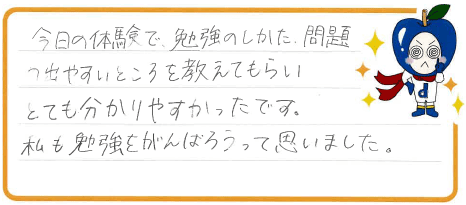 今日の体験で、勉強のしかた、問題
の出やすいところを教えてもらい
とても分かりやすかったです。
私も勉強をがんばろうって思いました。
d